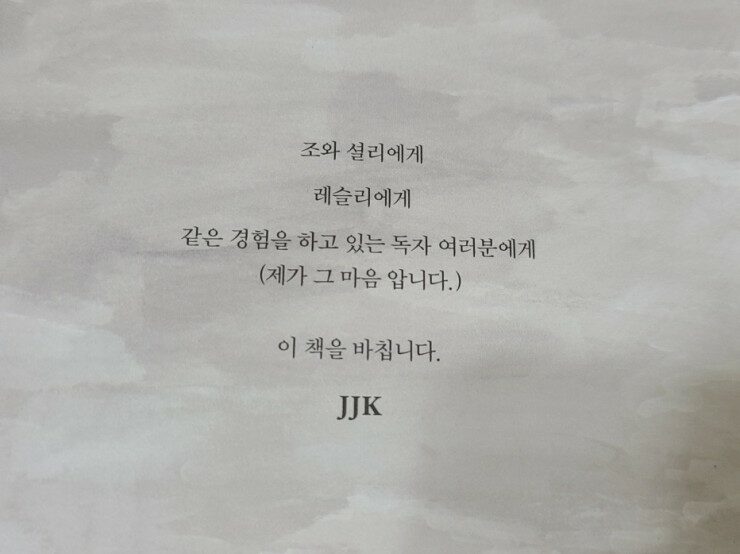 조와 셜리에게
레슬리에게
같은 경험을 하고 있는 독자 여러분에게
(제가 그 마음 압니다.)
이 책을 바칩니다.
JJK